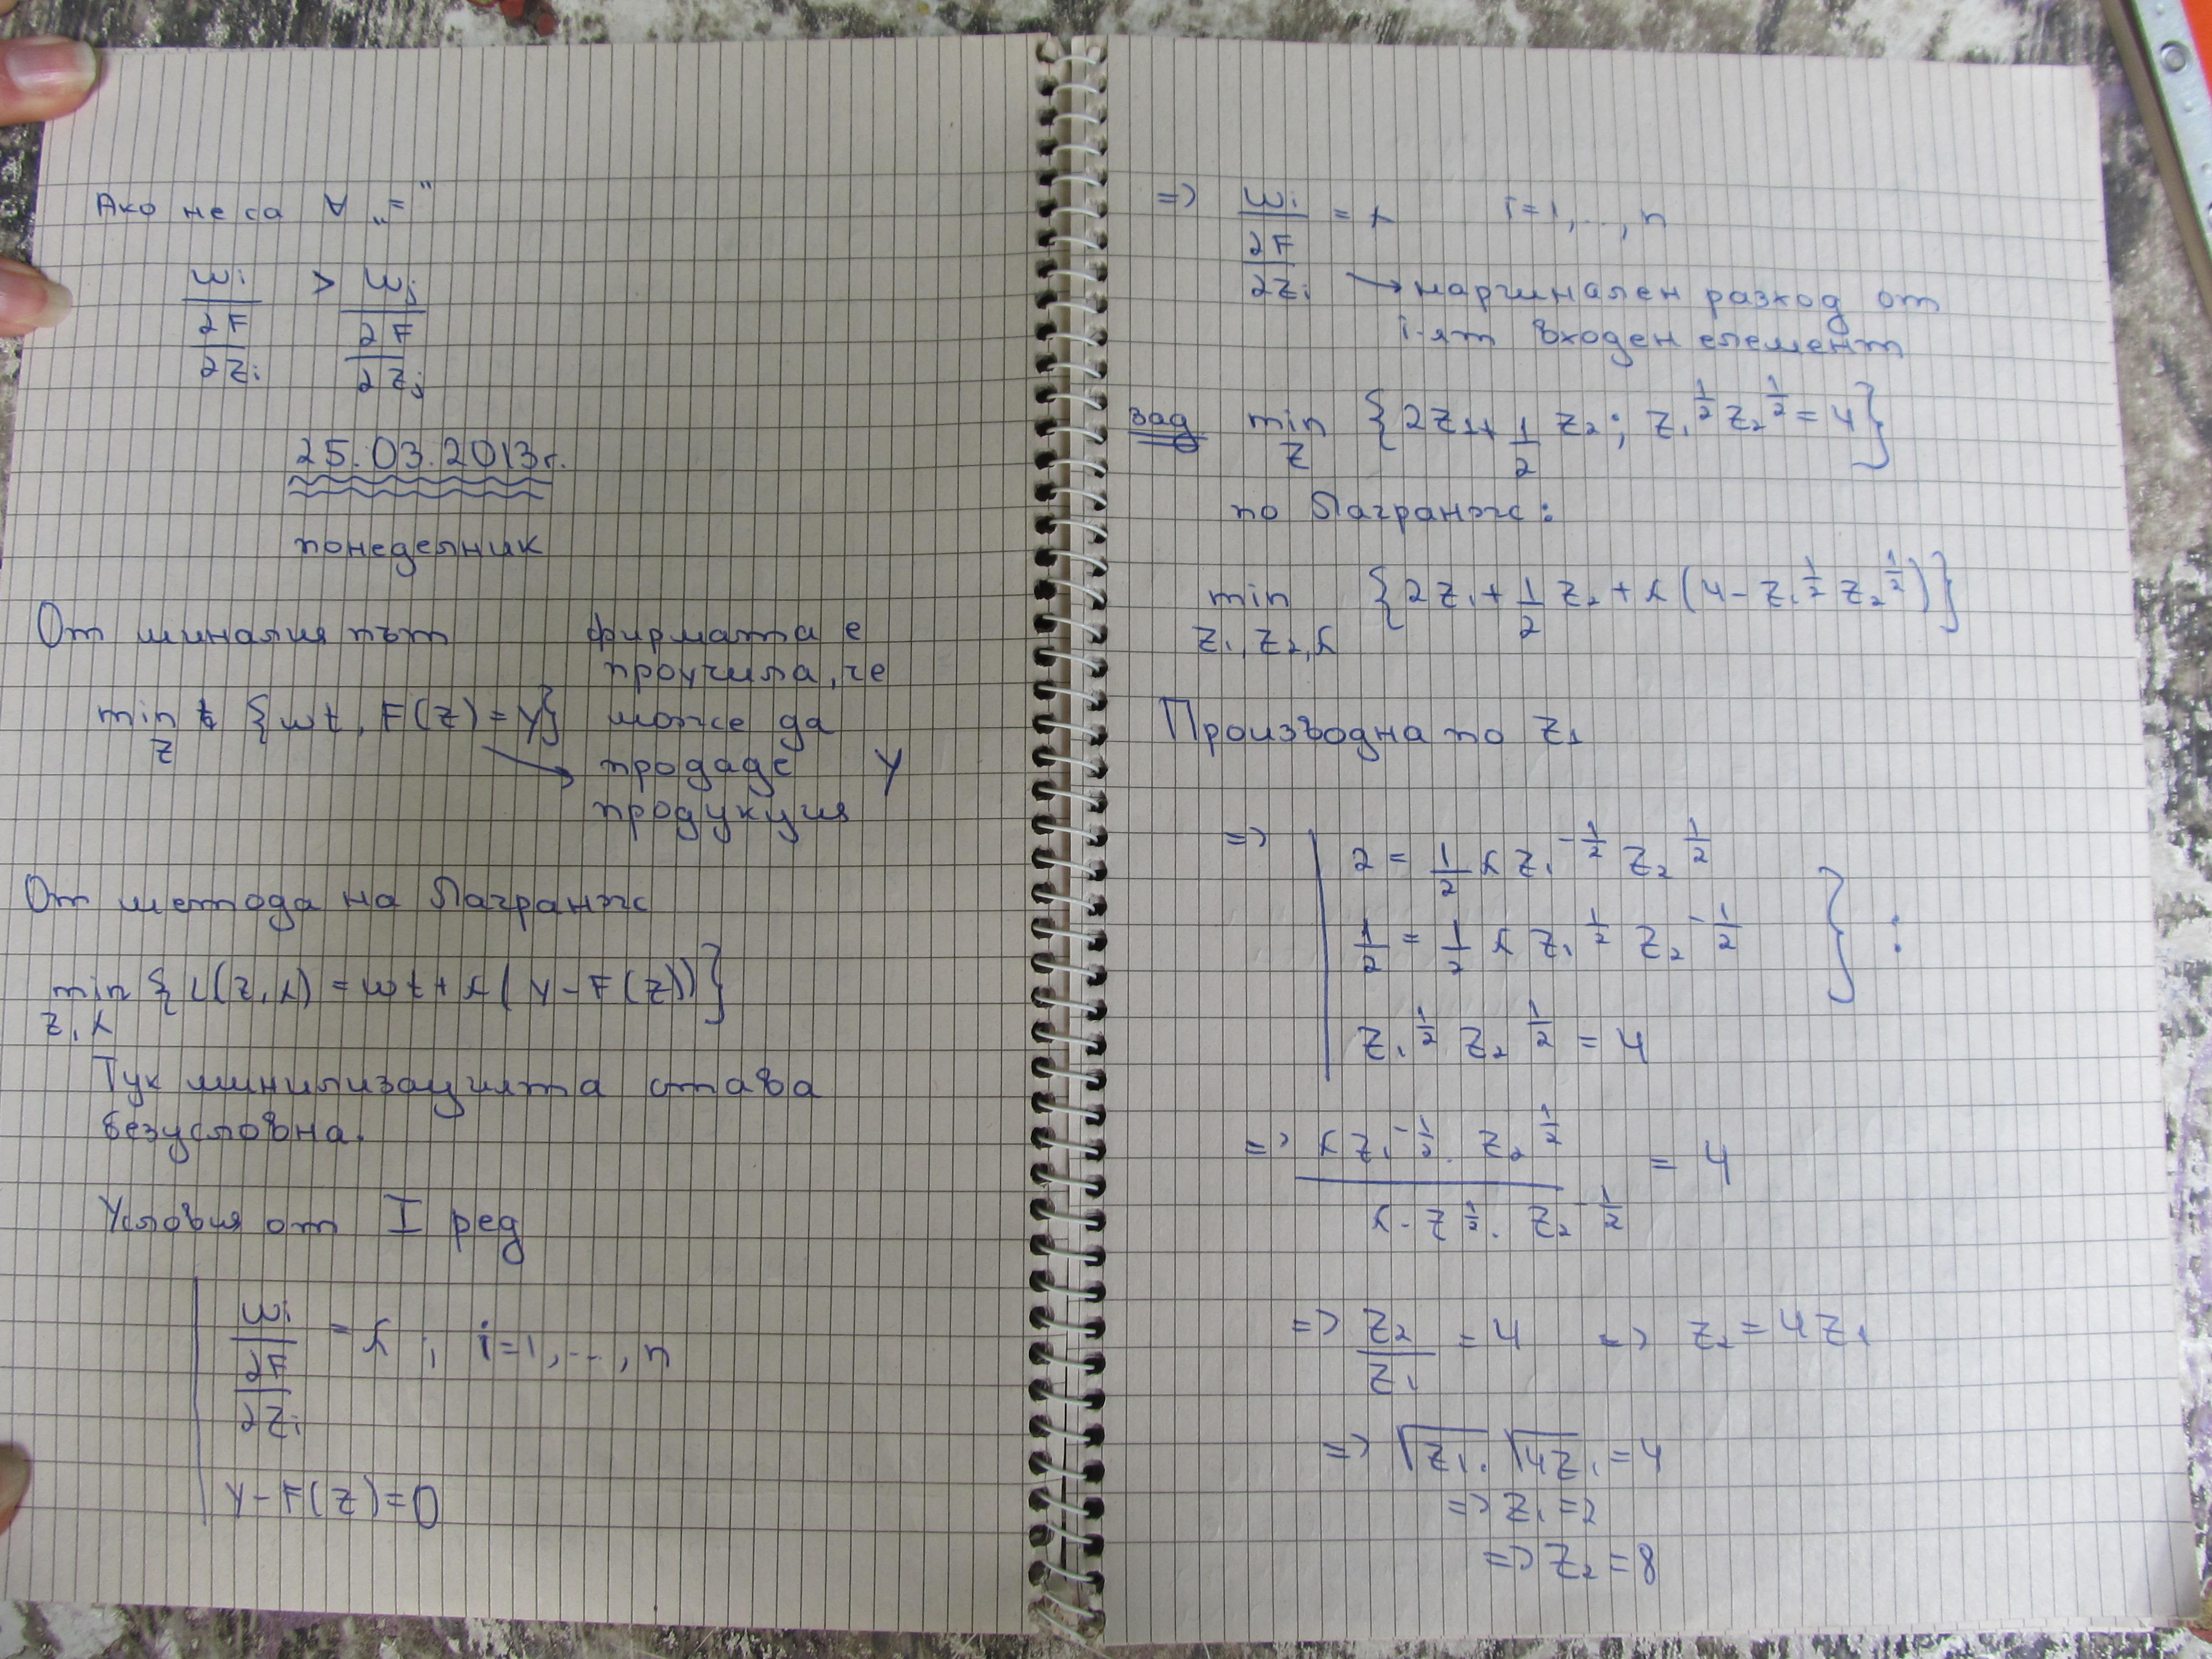 Ако не са ∀ „="
wi / (∂F/∂zi) > wj / (∂F/∂zj)
25.03.2013г.
понеделник
От миналия път
фирмата е
проучила, че
min z {wz, F(z) = y} може да
продаде y
продукция
От метода на Лагранж
min z, λ {L(z, λ) = wz + λ(y - F(z))}
Тук минилизацията става
безусловна.
Условия от I ред
wi / (∂F/∂zi) = λ, i=1, ..., n
y - F(z) = 0
=> wi / (∂F/∂zi) = λ i=1, ..., n
→ маргинален разход от
i-ят входен елемент
зад min z {2z₁ + 1/2 z₂; z₁^1/2 z₂^1/2 = 4}
по Лагранж:
min z₁, z₂, λ {2z₁ + 1/2 z₂ + λ(4 - z₁^1/2 z₂^1/2)}
Производна по z₁
=> 2 = 1/2 λ z₁^-1/2 z₂^1/2
1/2 = 1/2 λ z₁^1/2 z₂^-1/2 } :
z₁^1/2 z₂^1/2 = 4
=> (λ z₁^-1/2 . z₂^1/2) / (λ . z^1/2 . z₂^-1/2) = 4
=> z₂/z₁ = 4 => z₂ = 4z₁
=> √z₁ . √4z₁ = 4
=> z₁ = 2
=> z₂ = 8